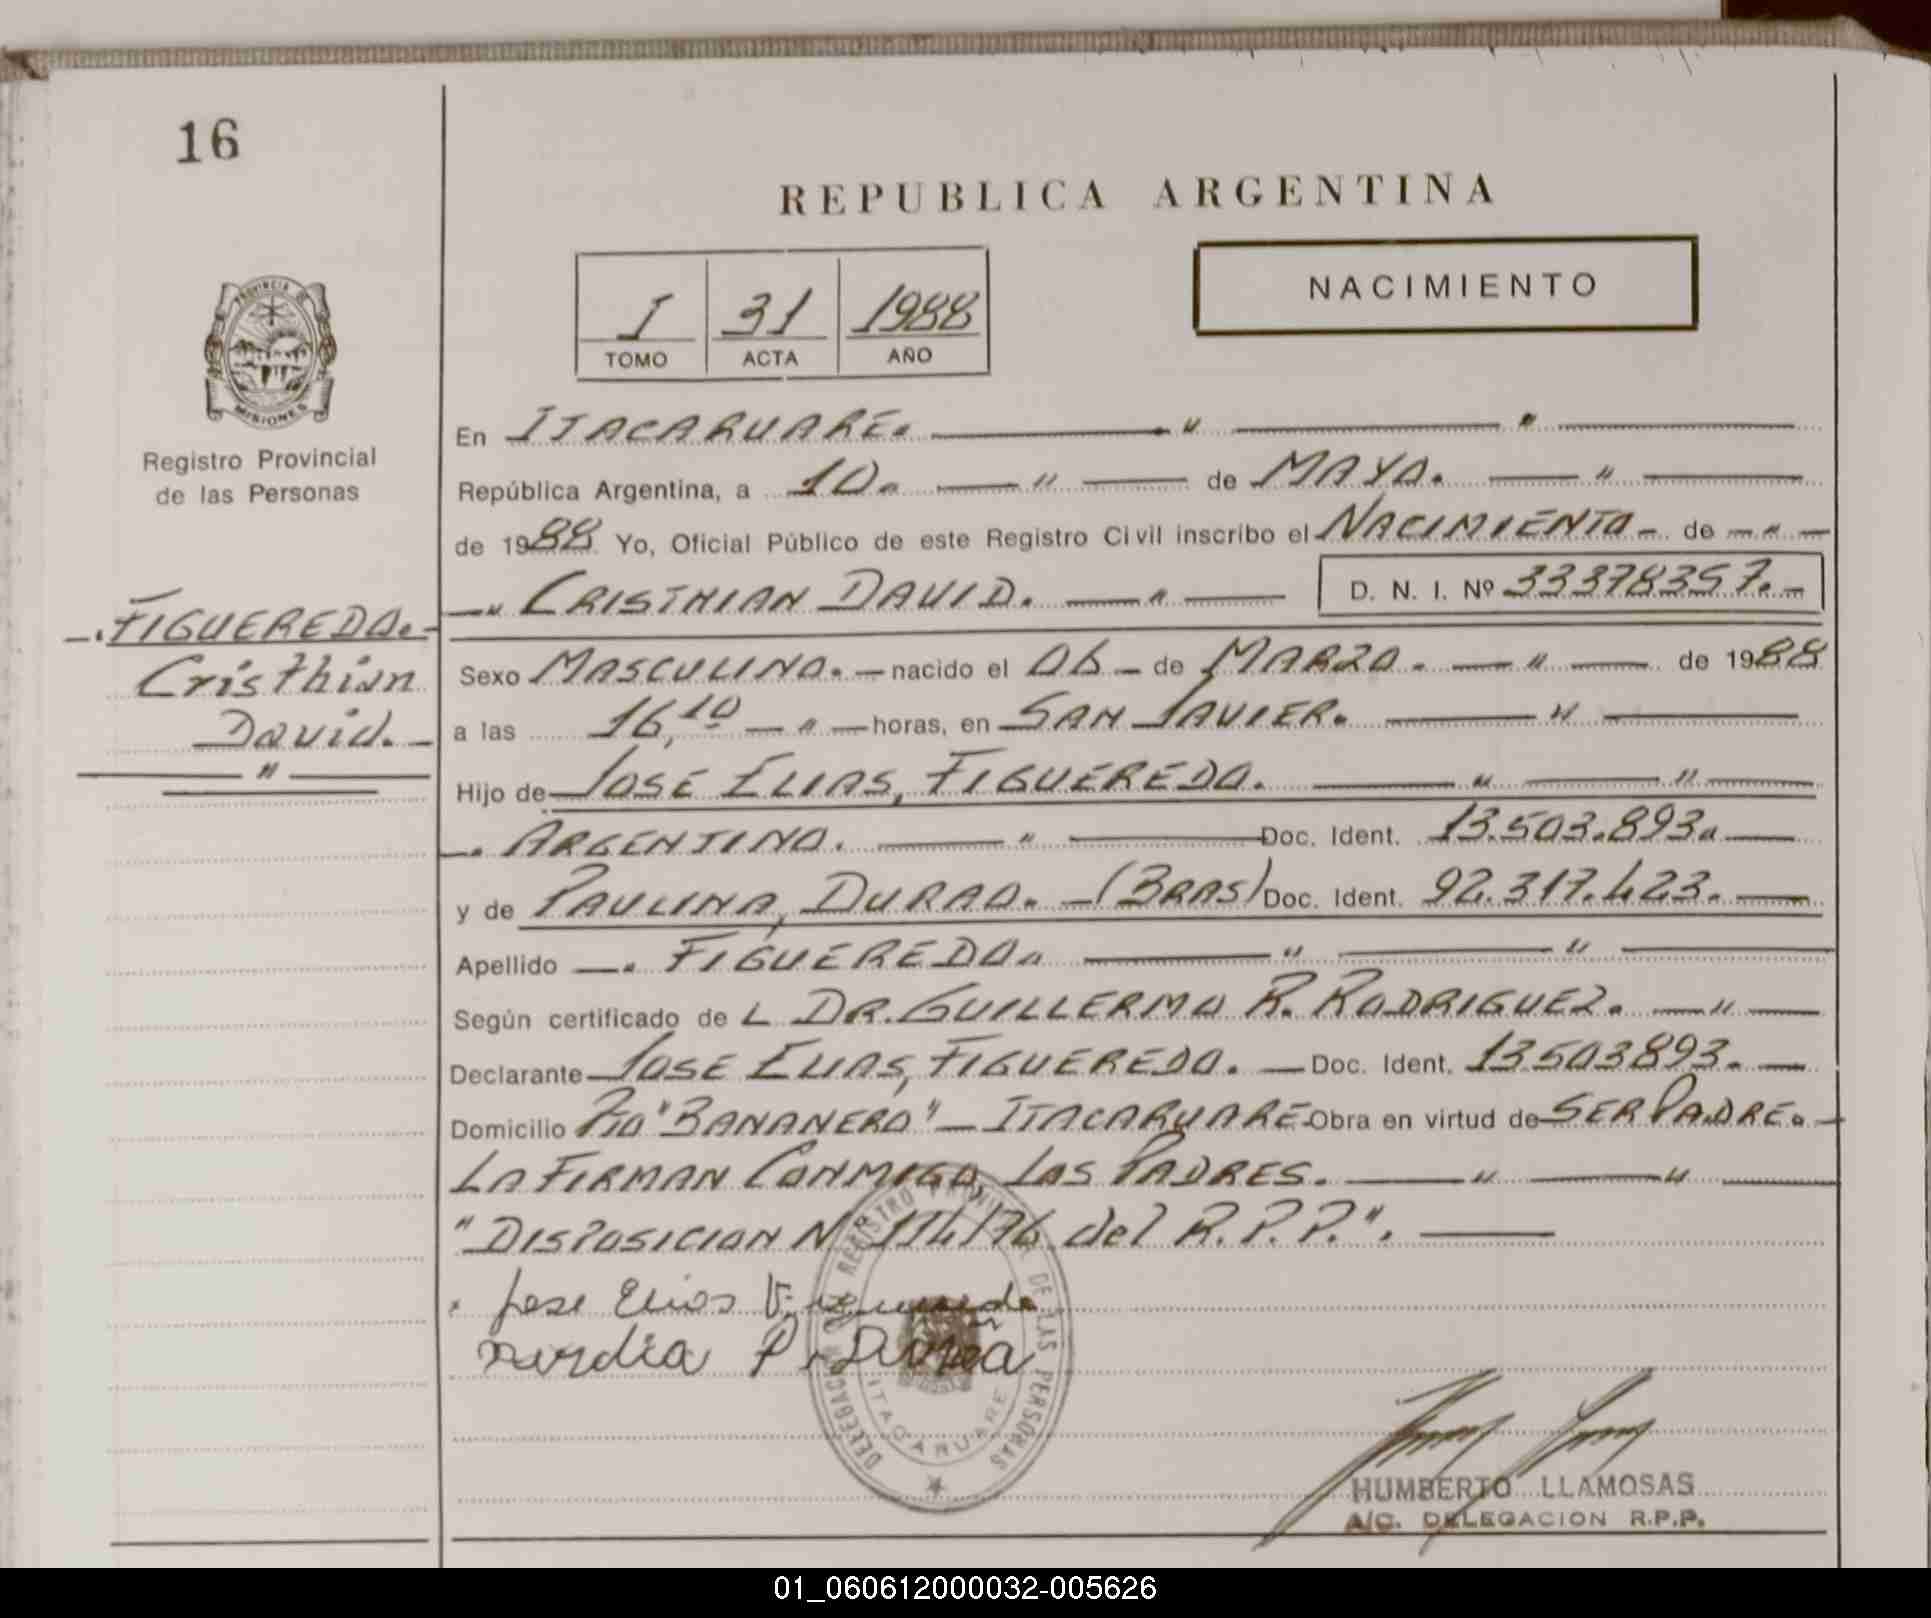 16
REPUBLICA ARGENTINA
NACIMIENTO
I 31 1988
TOMO ACTA AÑO
PROVINCIA DE
MISIONES
Registro Provincial
de las Personas
FIGUEREDO.
Cristhian
David.
En ITACARUARE.
República Argentina, a 10. de MAYO.
de 1988 Yo, Oficial Público de este Registro Civil inscribo el NACIMIENTO de
CRISTHIAN DAVID. D. N. I. Nº 33378357.
Sexo MASCULINO. nacido el 06 de MARZO. de 1988
a las 16,10 horas, en SAN JAVIER.
Hijo de JOSE ELIAS, FIGUEREDO.
ARGENTINO. Doc. Ident. 13.503.893.
y de PAULINA, DURAO. (BRAS) Doc. Ident. 92.317.423.
Apellido FIGUEREDO.
Según certificado de L DR. GUILLERMO R. RODRIGUEZ.
Declarante JOSE ELIAS, FIGUEREDO. Doc. Ident. 13503893.
Domicilio "BANANERO" - ITACARUARE Obra en virtud de SER PADRE.
LA FIRMAN CONMIGO, LOS PADRES.
"DISPOSICION Nº 114/76 del R.P.P.".
Jose Elias
DELEGACION REGISTRO PROVINCIAL DE LAS PERSONAS
ITACARUARE
HUMBERTO LLAMOSAS
A/C. DELEGACION R.P.P.
01_060612000032-005626